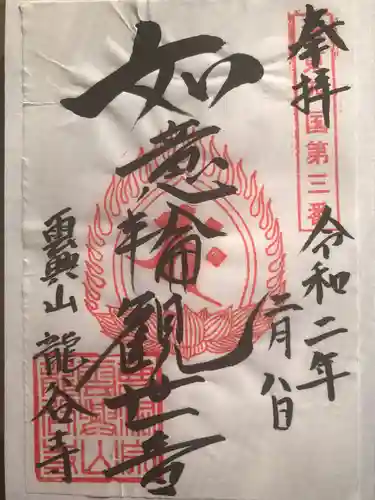 奉拝
国第三番
令和二年
二月八日
如意輪観世音
雲興山
龍谷寺